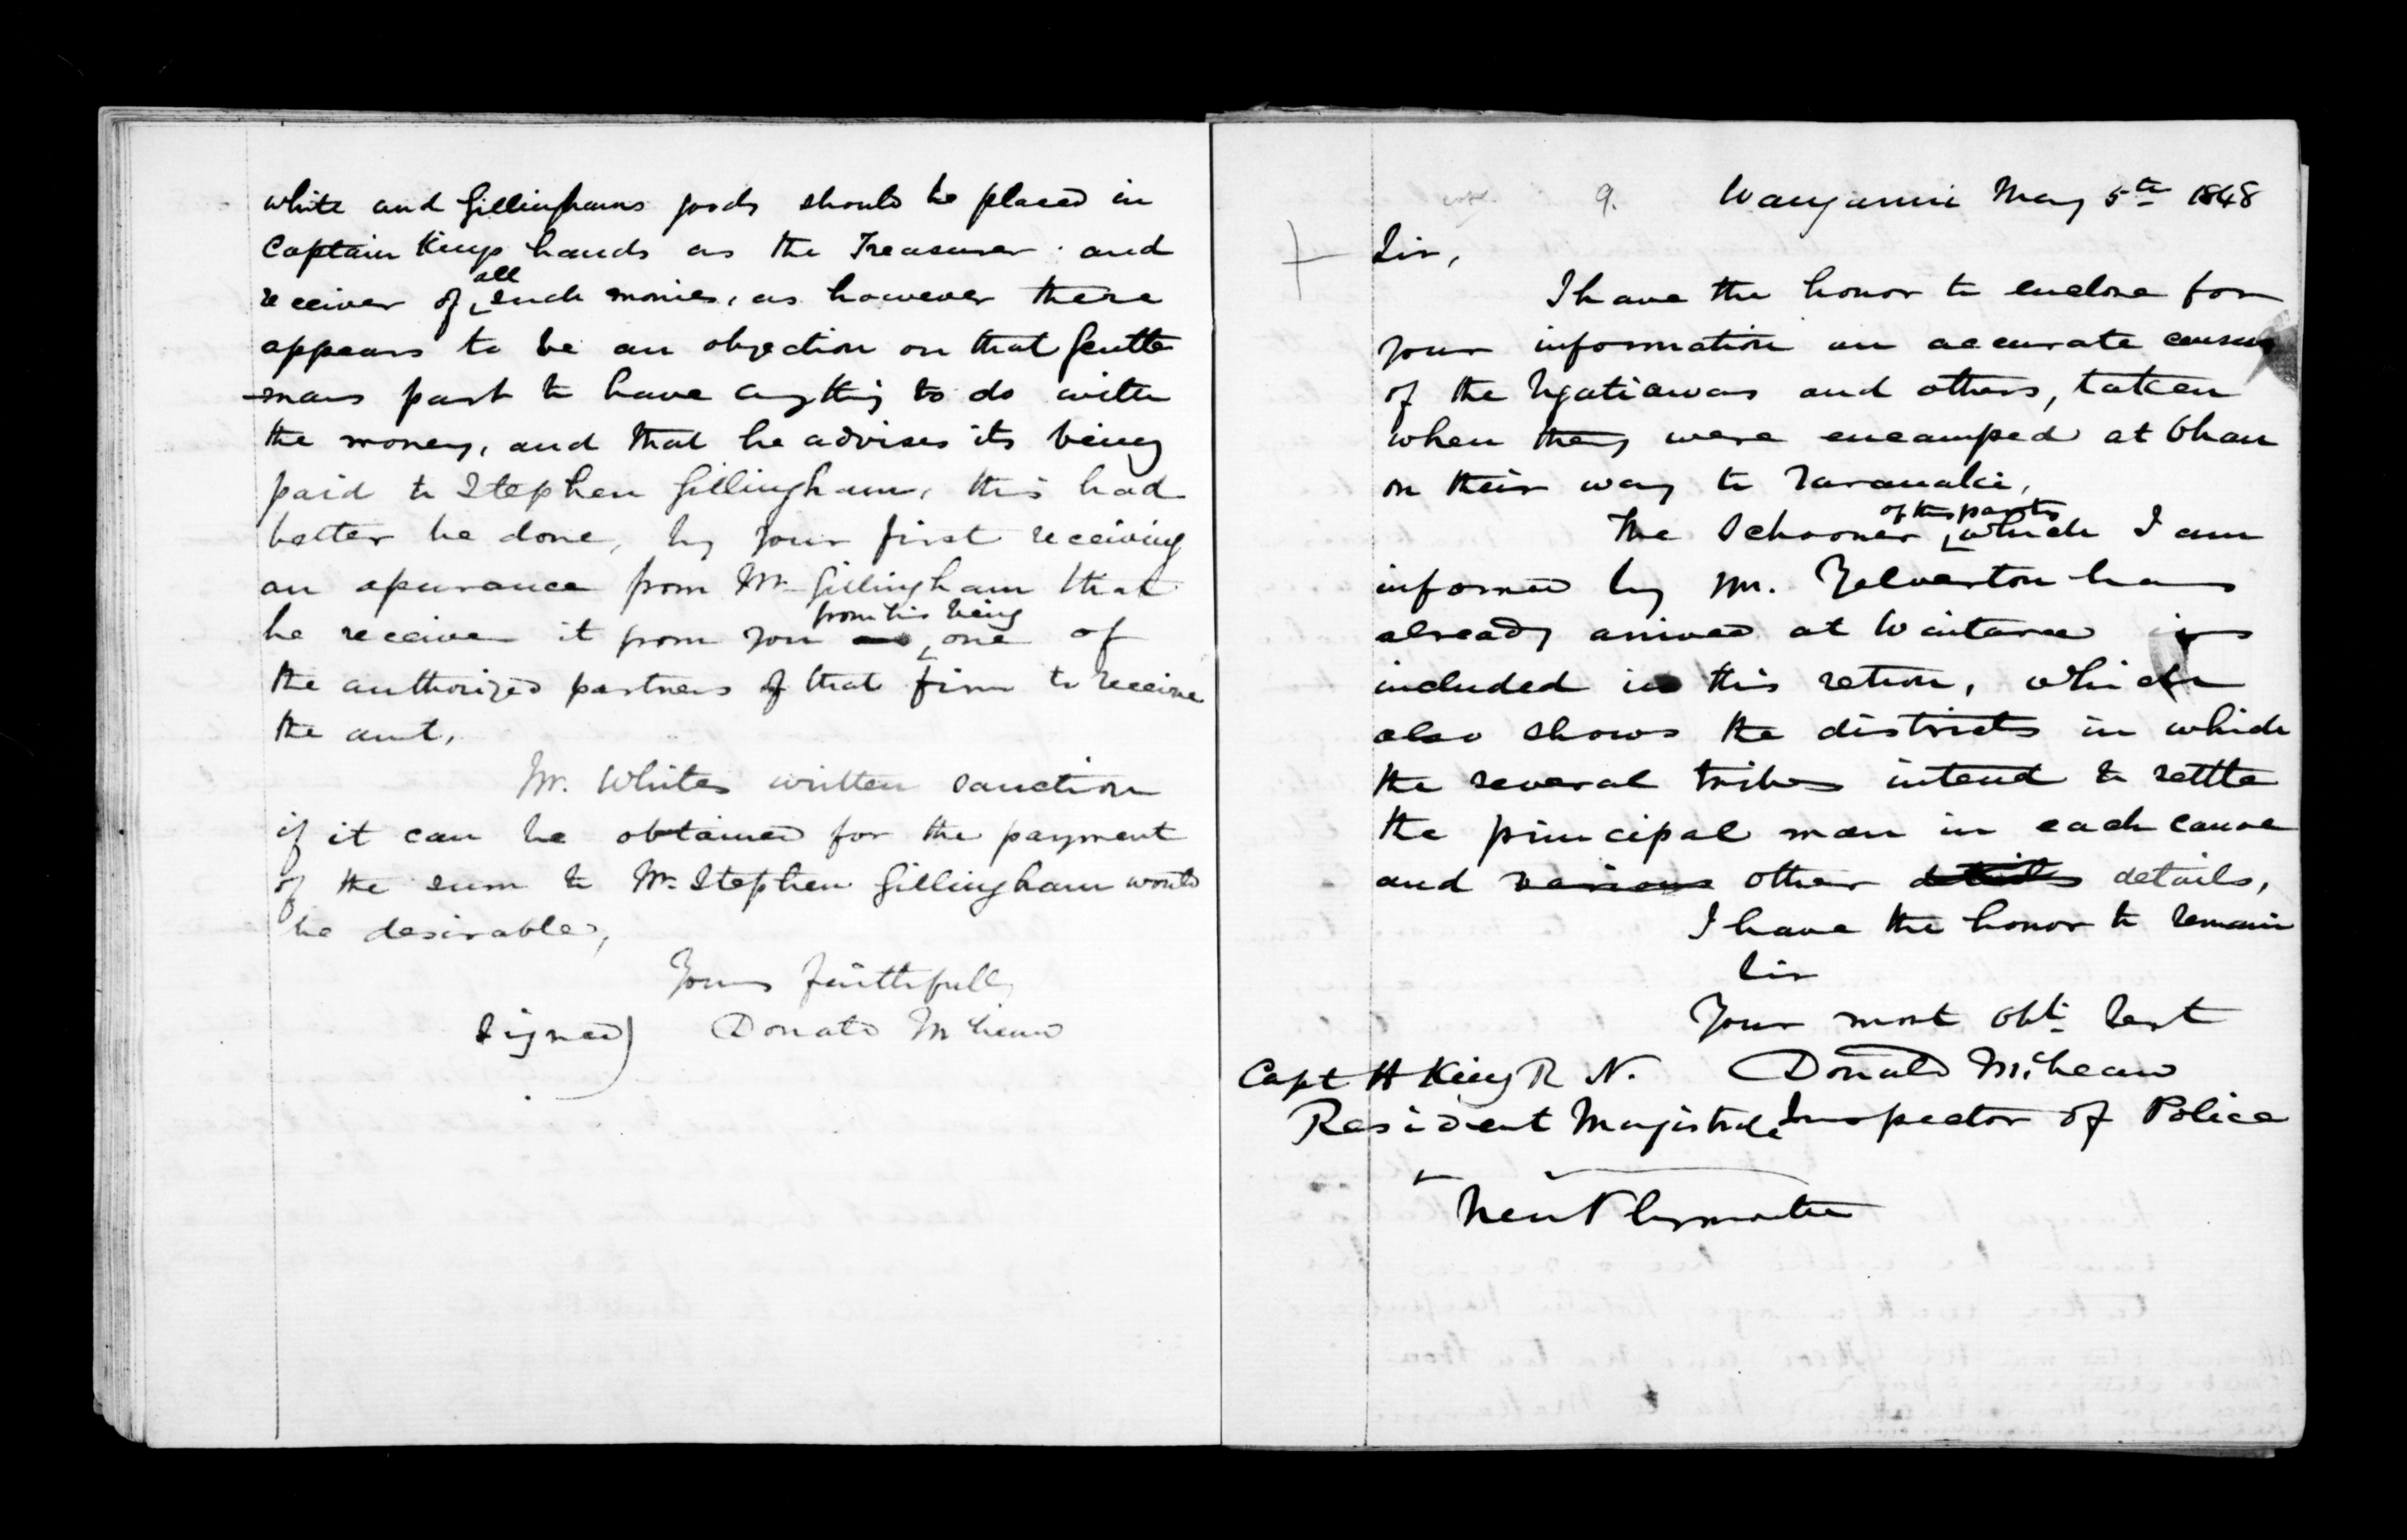 white and Gillinghams goods should be placed in
Captain Kings hands as the Treasurer and
all
receiver of such monies, as however there
appears to be an objection on that gentle
-mans part to have anything to do with
the money, and that he advises its being
paid to Stephen Gillingham, this had
better be done, by your first receiving
an assurance from Mr Gillingham that
from his being
he receives it from you as one of
the authorized partners of that firm to receive
the amt,
Mr. Whites written sanction
if it can be obtained for the payment
of the sum to Mr Stephen Gillingham would
be desirable,
Yours faithfully
Signed) Donald McLean
9. Wanganui May 5th 1848
Sir,
I have the honor to enclose for
your information an accurate census
of the Ngatiawas and others, taken
when they were encamped at Ohau
on their way to Taranaki,
of the party
The Schooner which I am
informed by Mr. Yelverton has
already arrived at Waitara is
included in this return, which
also shows the districts in which
the several tribes intend to settle
the principal man in each canoe
and various other details details,
I have the honor to remain
Sir
Your most obt Sert
Capt H King R N. Donald McLean
Resident Magistrate Inspector of Police
New Plymouth